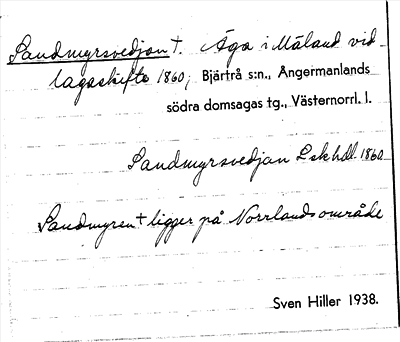 Sandmyrsvedjan †. Äga i Mäland vid
lagaskifte 1860, Bjärtrå s:n., Ångermanlands
södra domsagas tg., Västernorrl. l.
Sandmyrsvedjan Lskhdl 1860
Sandmyren † ligger på Norrlands område
Sven Hiller 1938.